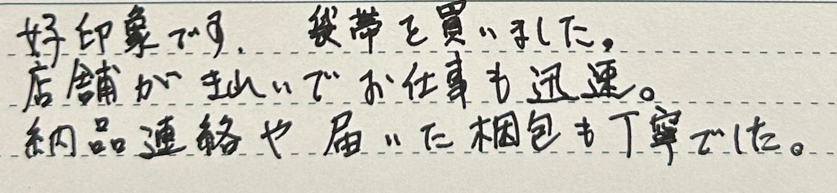 好印象です. 袋帯を買いました。
店舗がきれいでお仕事も迅速。
納品連絡や届いた梱包も丁寧でした。